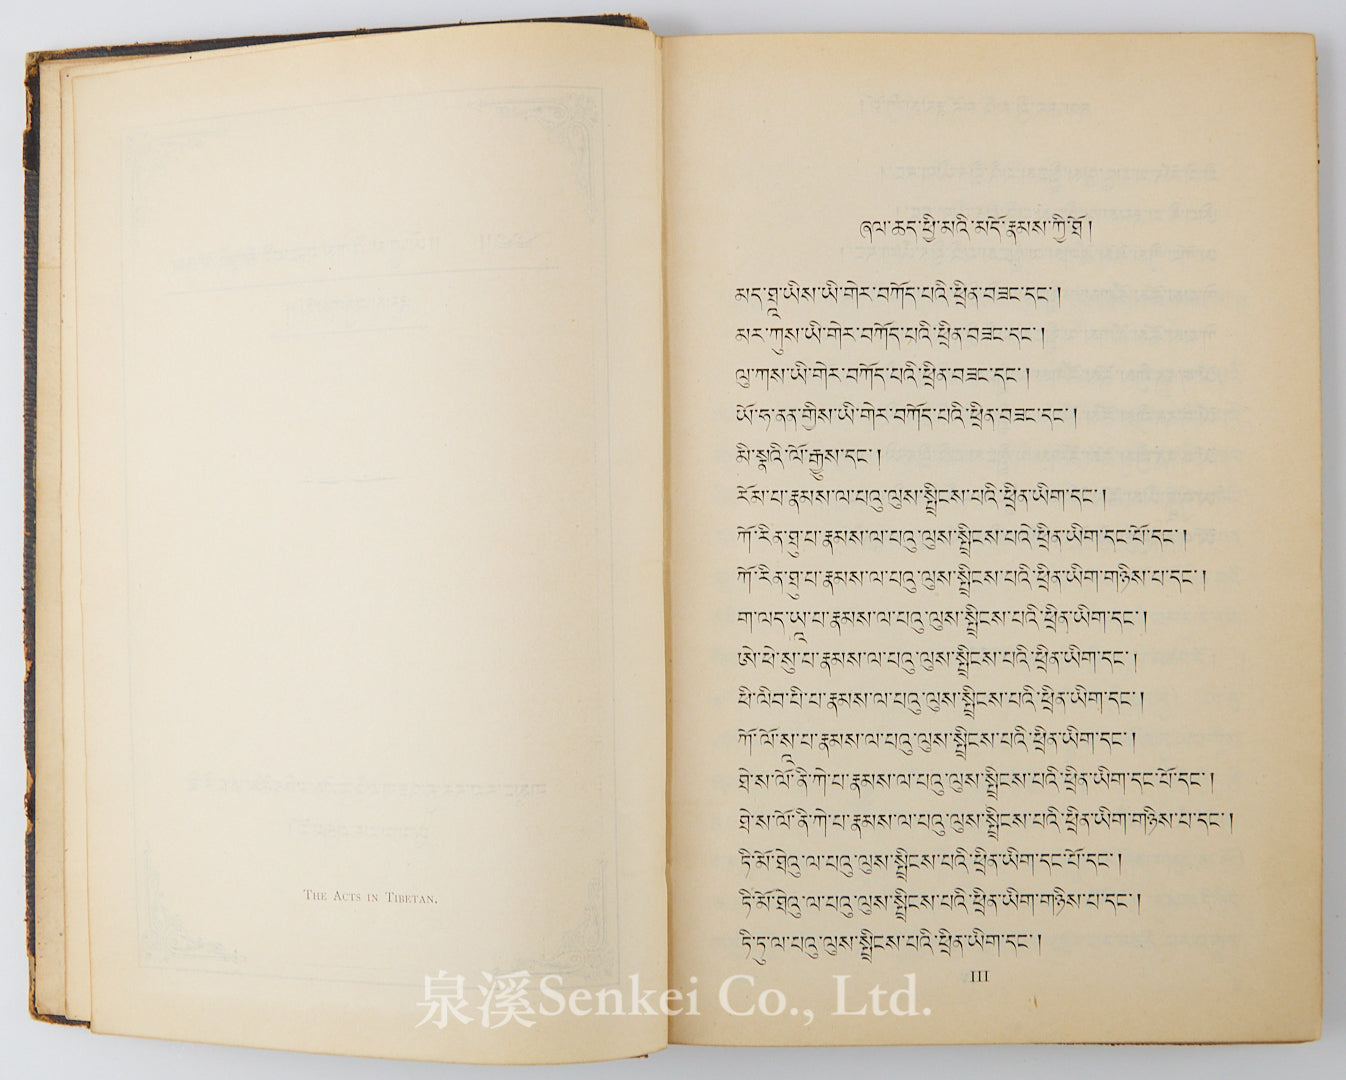 THE ACTS IN TIBETAN.
ཞལ་ཆད་ཕྱི་མའི་མདོ་རྣམས་ཀྱི་ཐོ།
མད་ཐཱ་ཡིས་ཡི་གེར་བཀོད་པའི་ཕྲིན་བཟང་དང་།
མར་ཀུས་ཡི་གེར་བཀོད་པའི་ཕྲིན་བཟང་དང་།
ལུ་ཀས་ཡི་གེར་བཀོད་པའི་ཕྲིན་བཟང་དང་།
ཡོ་ཧ་ནན་གྱིས་ཡི་གེར་བཀོད་པའི་ཕྲིན་བཟང་དང་།
མི་སྣའི་ལོ་རྒྱུས་དང་།
རོམ་པ་རྣམས་ལ་པའུ་ལུས་སྤྲིངས་པའི་ཕྲིན་ཡིག་དང་།
ཀོ་རིན་ཐུ་པ་རྣམས་ལ་པའུ་ལུས་སྤྲིངས་པའི་ཕྲིན་ཡིག་དང་པོ་དང་།
ཀོ་རིན་ཐུ་པ་རྣམས་ལ་པའུ་ལུས་སྤྲིངས་པའི་ཕྲིན་ཡིག་གཉིས་པ་དང་།
ག་ལད་ཡཱ་པ་རྣམས་ལ་པའུ་ལུས་སྤྲིངས་པའི་ཕྲིན་ཡིག་དང་།
ཨེ་ཕེ་སུ་པ་རྣམས་ལ་པའུ་ལུས་སྤྲིངས་པའི་ཕྲིན་ཡིག་དང་།
ཕི་ལིབ་པི་པ་རྣམས་ལ་པའུ་ལུས་སྤྲིངས་པའི་ཕྲིན་ཡིག་དང་།
ཀོ་ལོ་སཱ་པ་རྣམས་ལ་པའུ་ལུས་སྤྲིངས་པའི་ཕྲིན་ཡིག་དང་།
ཐེ་ས་ལོ་ནི་ཀེ་པ་རྣམས་ལ་པའུ་ལུས་སྤྲིངས་པའི་ཕྲིན་ཡིག་དང་པོ་དང་།
ཐེ་ས་ལོ་ནི་ཀེ་པ་རྣམས་ལ་པའུ་ལུས་སྤྲིངས་པའི་ཕྲིན་ཡིག་གཉིས་པ་དང་།
ཏི་མོ་ཐེའུ་ལ་པའུ་ལུས་སྤྲིངས་པའི་ཕྲིན་ཡིག་དང་པོ་དང་།
ཏི་མོ་ཐེའུ་ལ་པའུ་ལུས་སྤྲིངས་པའི་ཕྲིན་ཡིག་གཉིས་པ་དང་།
ཏི་ཏུ་ལ་པའུ་ལུས་སྤྲིངས་པའི་ཕྲིན་ཡིག་དང་།
III
泉溪Senkei Co., Ltd.